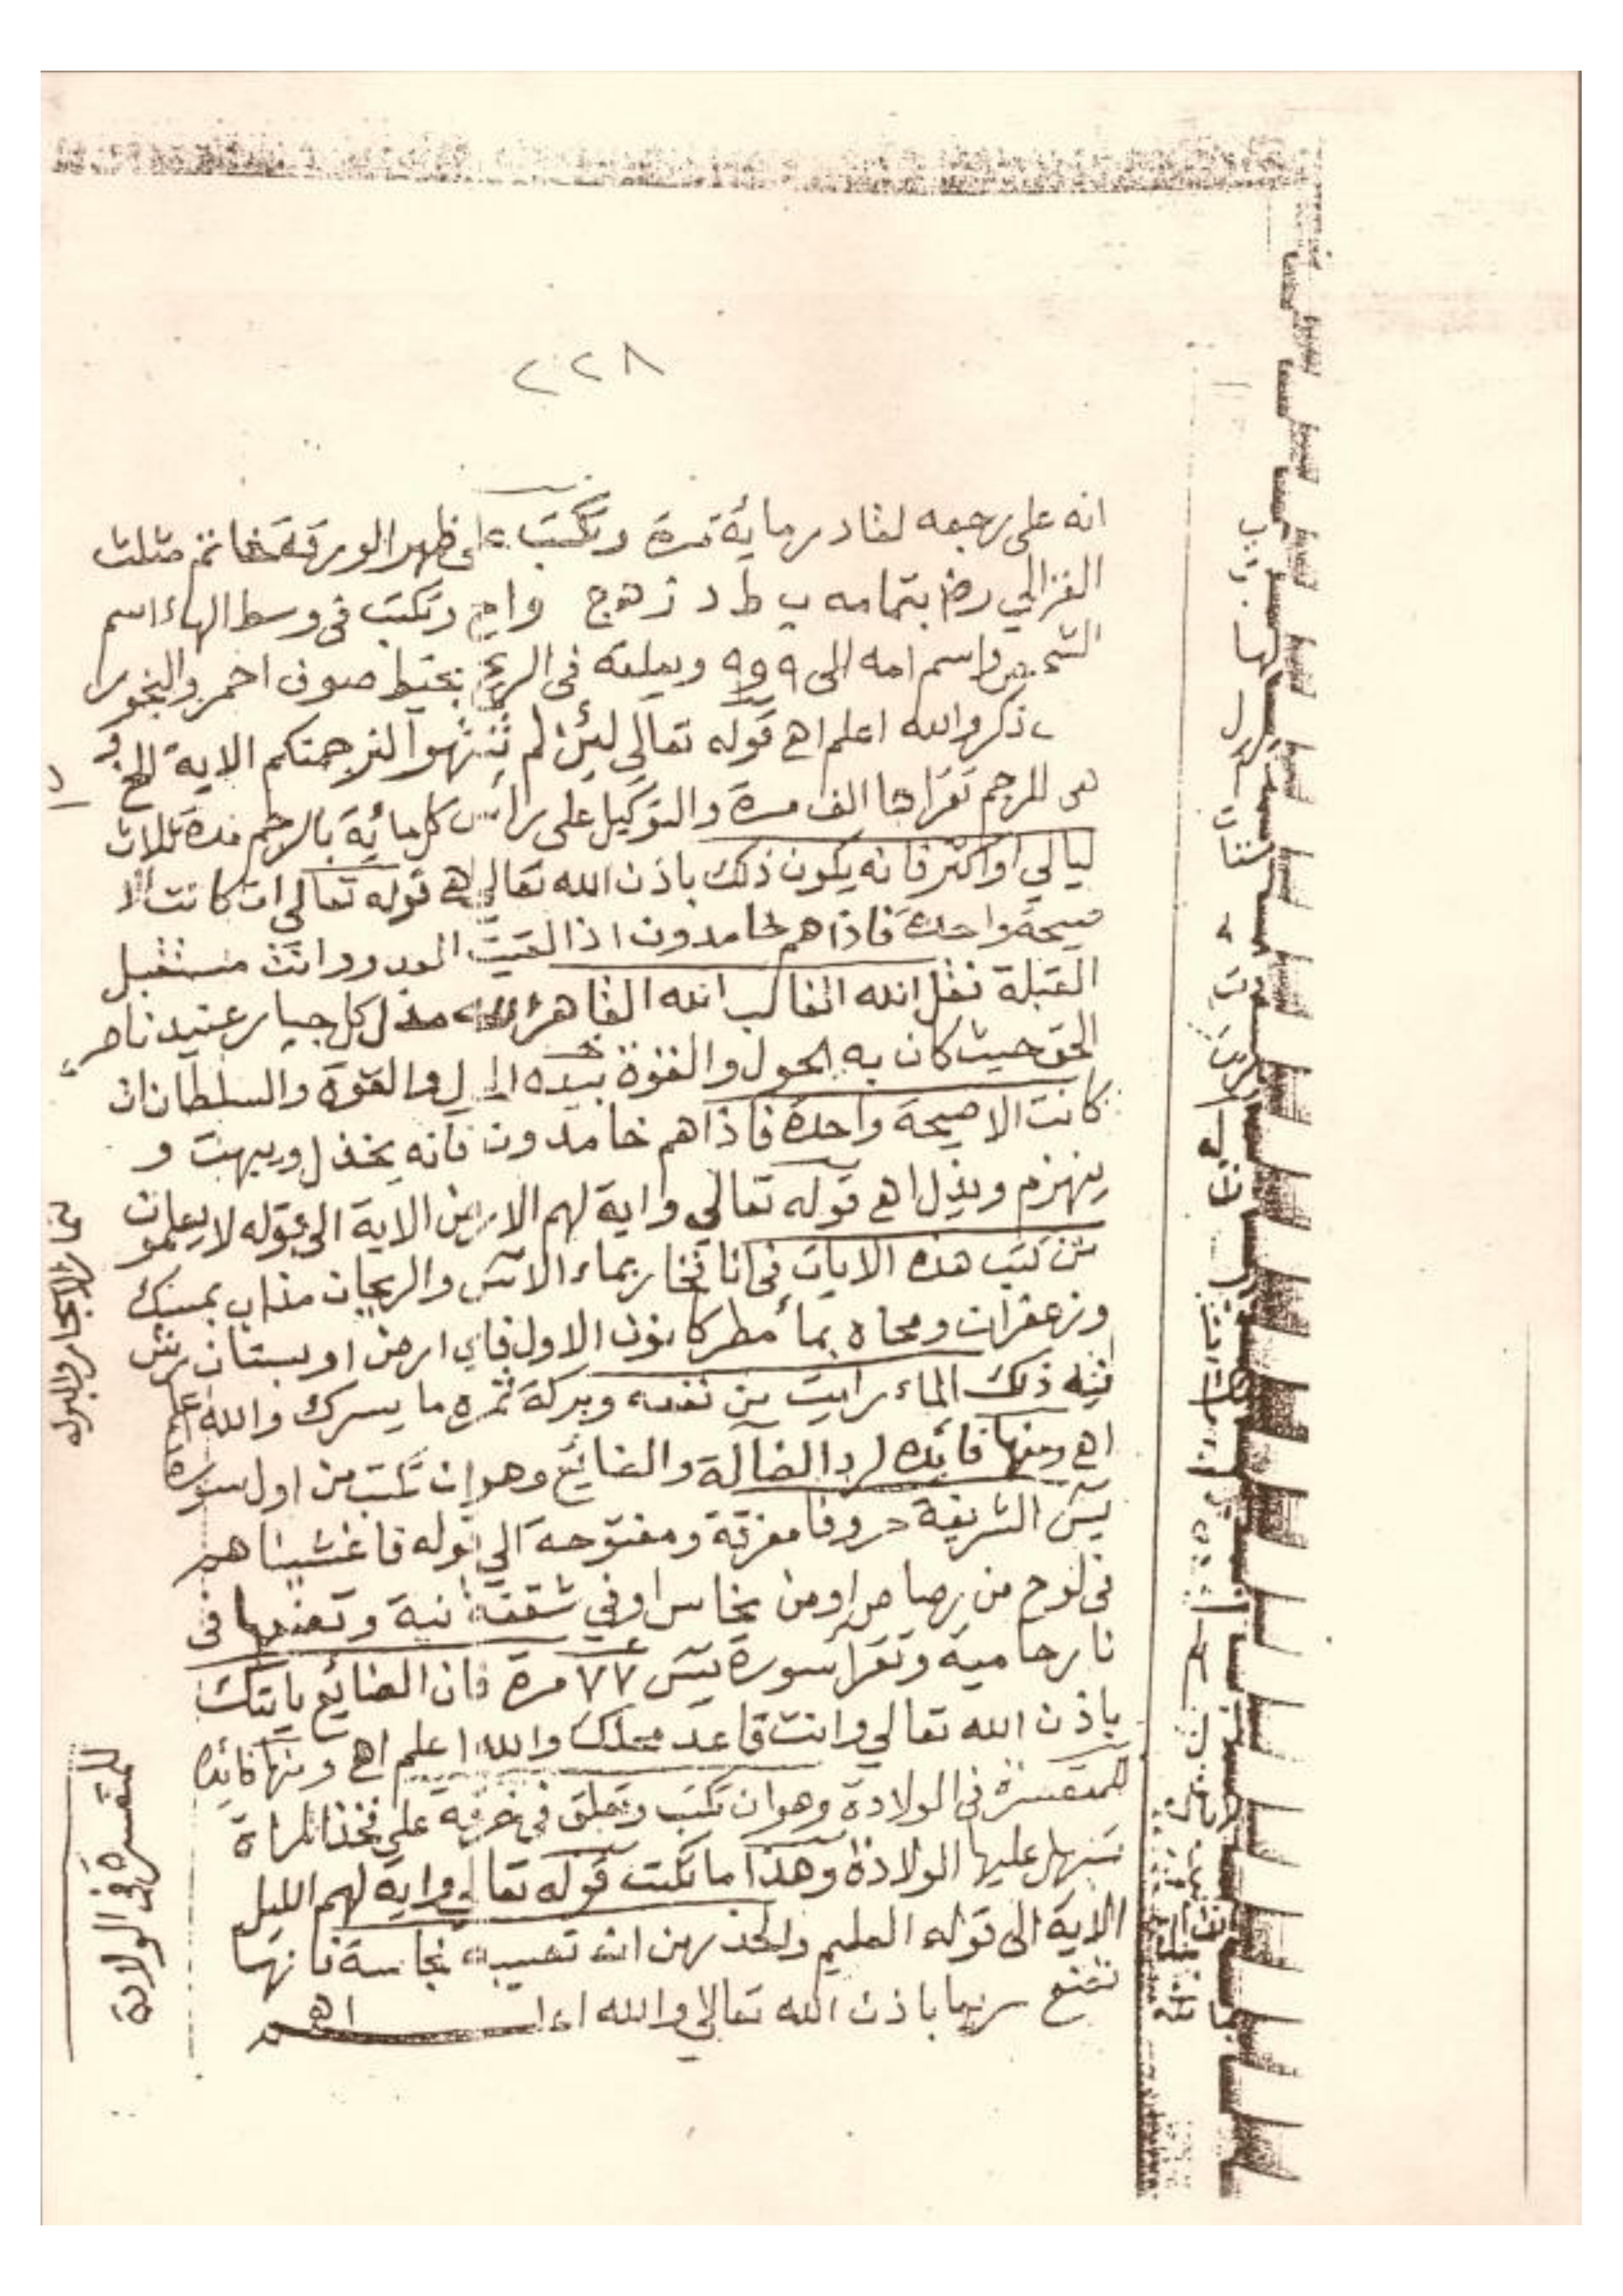 ٢٢٨
انه على رجعه لقادر مائة مرة وتكتب على ظهر الورقة خاتم مثلث
الغزالي رض بتمامه ب ط د ز ه ج و ا ح وتكتب فى وسط الهاء اسم
الشخص واسم امه الى ٩ و ٩ ويعلقه فى الريح بخيط صوف احمر والبخور
ذكر والله اعلم اهـ قوله تعالي لئن لم تنتهوا لنرجمنكم الاية الخ
هى للرجم تقراها الف مرة والتوكيل على راس كل مائة بالرجم مدة ثلاث
ليالي او اكثر فانه يكون ذلك باذن الله تعالي اهـ قوله تعالى ان كانت الا
صيحة واحدة فاذا هم خامدون اذا لقيت العدو وانت مستقبل
القبلة تقل الله الغالب الله القاهر مذل كل جبار عنيد ناصر
الحق حيث كان به الحول والقوة بيده الحول والقوة والسلطان ان
كانت الا صيحة واحدة فاذا هم خامدون فانه يخذل ويبهت و
ينهزم ويذل اهـ قوله تعالي واية لهم الارض الاية الى قوله لا يعلمون
من كتب هذه الايات فى انا فخار بماء الآس والريحان مذاب بمسك
وزعفران ومحاه بمأ مطر كانون الاول فاي ارض او بستان رش
فيه ذلك الماء رايت من نفعه وبركة ثمره ما يسرك والله اعلم
اهـ ومنها فائده لرد الضآلة والضائع وهو ان تكتب من اول سورة
يٓس الشريفة حروفا مفرقة ومفتوحة الي قوله فاغشيناهم
فى لوح من رصاص او من نحاس او في شقفة نية وتضعها فى
نار حامية وتقرأ سورة يٓس ٧٧ مرة فان الضائع ياتيك
باذن الله تعالي وانت قاعد محلك والله اعلم اهـ ومنها فائده
للمتعسرة فى الولادة وهو ان تكتب وتعلق في خرقة على فخذ المراة
يسهل عليها الولادة وهذا ما تكتب قوله تعالي واية لهم الليل
الاية الى قوله العليم والحذر من ان تصيبه نجاسة فانها
تضع سريعا باذن الله تعالي والله اعلم اهـ
للمتعسرة فى الولادة